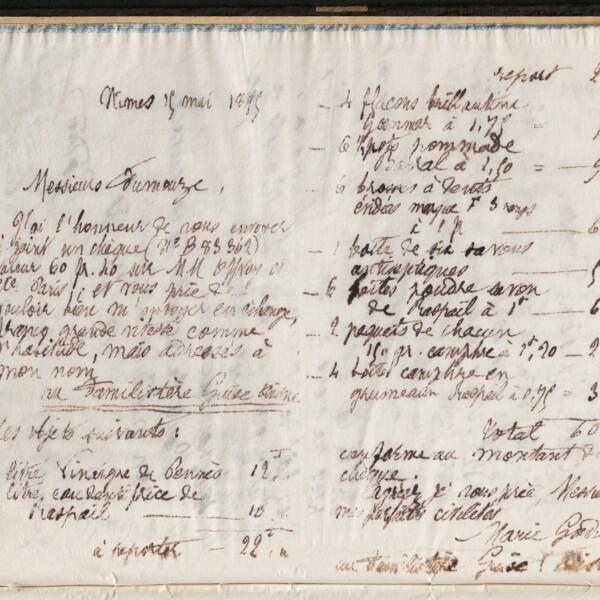 Nimes 15 mai 1895
Messieurs Dumouze,
J'ai l'honneur de vous envoyer
joint un chèque (N° B 83 362)
valeur 60 fr. 20 sur MM Offroy et
Cie Paris; et vous prie de
vouloir bien m'envoyer en échange,
franco grande vitesse comme
d'habitude, mais adressés à
mon nom
au Familistère Guise Aisne
les objets suivants:
litre Vinaigre de Pennès 12 f
litre eau dentifrice de
Raspail 10
à reporter 22 f
report 2
4 flacons brillantine
à 1,75 =
6 pots pommade
à 1,50 =
6 brosses à dents
marque 3 rangs
à 1 f 6
1 boite de six savons
antiseptiques
6 boites poudre savon
de Raspail à 1 f 6
2 paquets de chacun
150 gr. camphre à 1f,20 2
4 boites camphre en
grumeaux Raspail à 0,75 = 3
Total 60
conforme au montant d
chèque.
Agréez je vous prie, Messie
mes civilités
Marie God
au Familistère Guise (Aisn